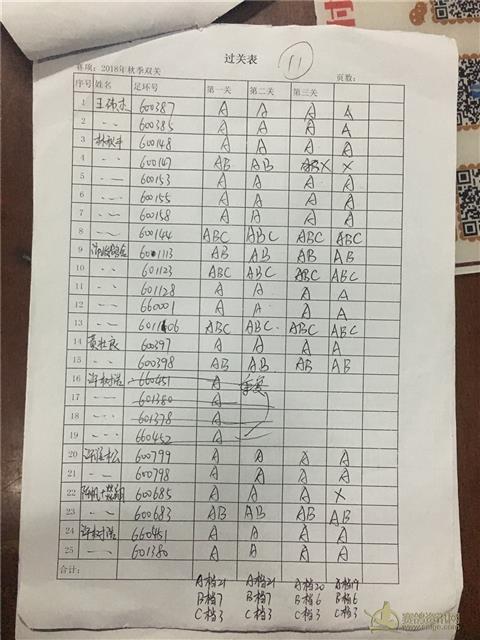 过关表
11
赛项：2018年秋季双关 页数：
序号 姓名 足环号 第一关 第二关 第三关
1 王伟杰 600387 A A A A
2 〃 600385 A A A A
3 林秋丰 600148 A A A A
4 〃 600147 AB AB ABX X
5 〃 600153 A A A A
6 〃 600155 A A A A
7 〃 600158 A A A A
8 〃 600144 ABC ABC ABC ABC
9 601113 AB AB AB AB
10 〃 601123 ABC ABC ABC ABC
11 〃 601128 A A A A
12 〃 660001 A A A A
13 〃 601106 ABC ABC ABC ABC
14 黄壮良 600397 A A A A
15 〃 600398 AB AB AB AB
16 许树浩 660451 A 重复
17 〃 601380 A
18 〃 601378 A
19 〃 660452 A
20 600799 A A A A
21 〃 600798 A A A A
22 600685 A A A X
23 〃 600683 AB AB AB AB
24 许树浩 660451 A A A A
25 〃 601380 A A A A
合计：
A档21 A档21 A档20 A档19
B档7 B档7 B档6 B档6
C档3 C档3 C档3 C档3
赛鸽资讯网